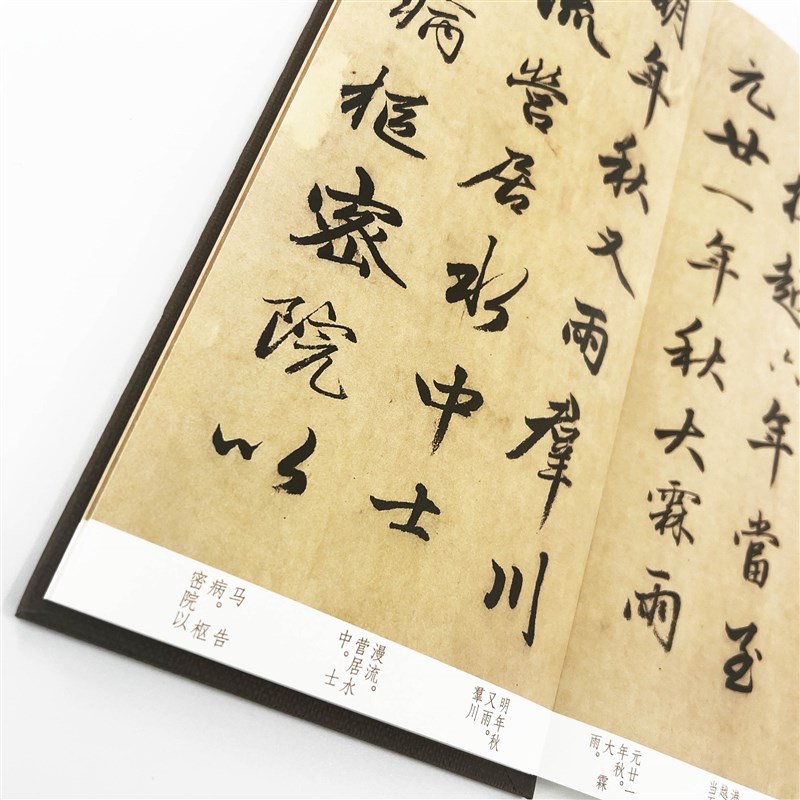 越六年當至
元廿一年秋大霖雨
明年秋又雨羣川
流營居水中士
病樞密院以
元廿一年秋。大霖雨。
明年秋又雨。羣川
漫流。营居水中。士
马病。告枢密院以